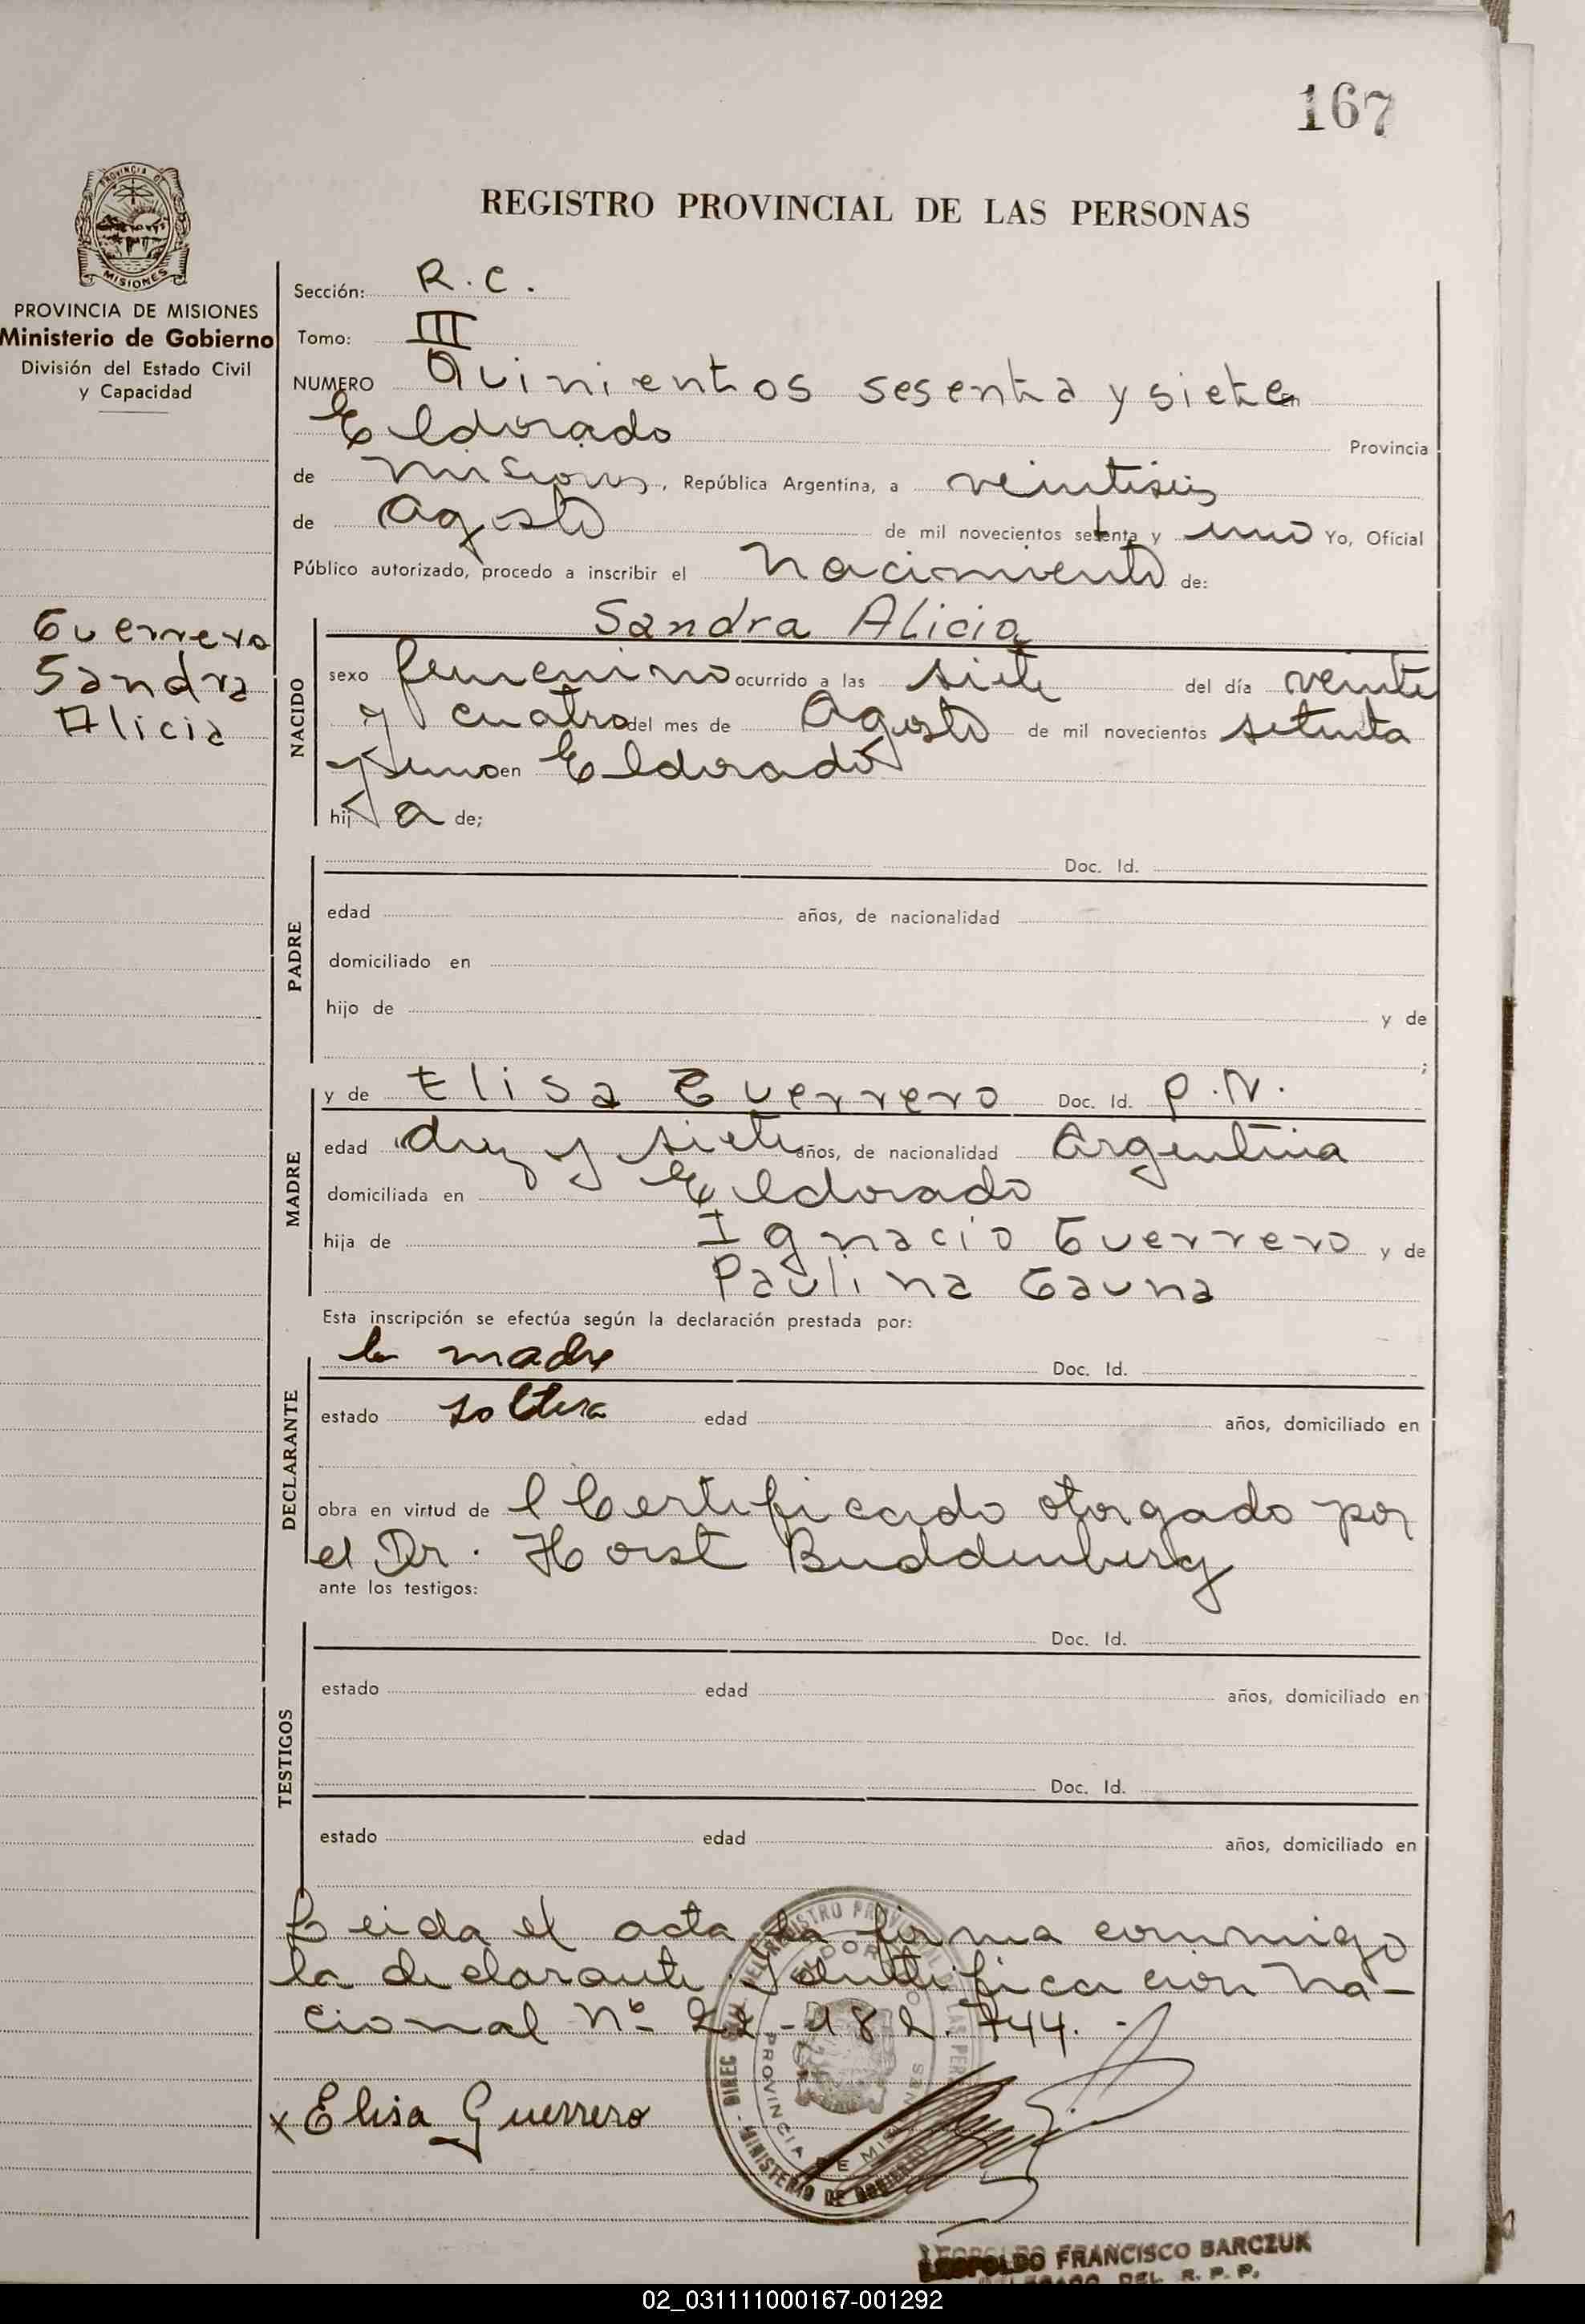 167
PROVINCIA DE
MISIONES
REGISTRO PROVINCIAL DE LAS PERSONAS
PROVINCIA DE MISIONES
Ministerio de Gobierno
División del Estado Civil
y Capacidad
Sección: R.C.
Tomo: III
NUMERO Quinientos sesenta y siete en
Eldorado Provincia
de Misiones, República Argentina, a veintiseis
de Agosto de mil novecientos setenta y uno Yo, Oficial
Público autorizado, procedo a inscribir el Nacimiento de:
Guerrero
Sandra
Alicia
NACIDO
Sandra Alicia
sexo femenino ocurrido a las siete del día veinte
y cuatro del mes de Agosto de mil novecientos setenta
y uno en Eldorado
hij a de;
PADRE
Doc. Id.
edad años, de nacionalidad
domiciliado en
hijo de y de
;
MADRE
y de Elisa Guerrero Doc. Id. P.N.
edad diez y siete años, de nacionalidad Argentina
domiciliada en Eldorado
hija de Ignacio Guerrero y de
Paulina Gauna
Esta inscripción se efectúa según la declaración prestada por:
DECLARANTE
la madre Doc. Id.
estado soltera edad años, domiciliado en
obra en virtud de l Certificado otorgado por
el Dr. Horst Buddenberg
ante los testigos:
TESTIGOS
Doc. Id.
estado edad años, domiciliado en
Doc. Id.
estado edad años, domiciliado en
Leida el acta la firma conmigo
la declarante. Identificación Na-
cional Nº
x Elisa Guerrero
LEOPOLDO FRANCISCO BARCZUK
DELEGADO DEL R. P. P.
02_031111000167-001292